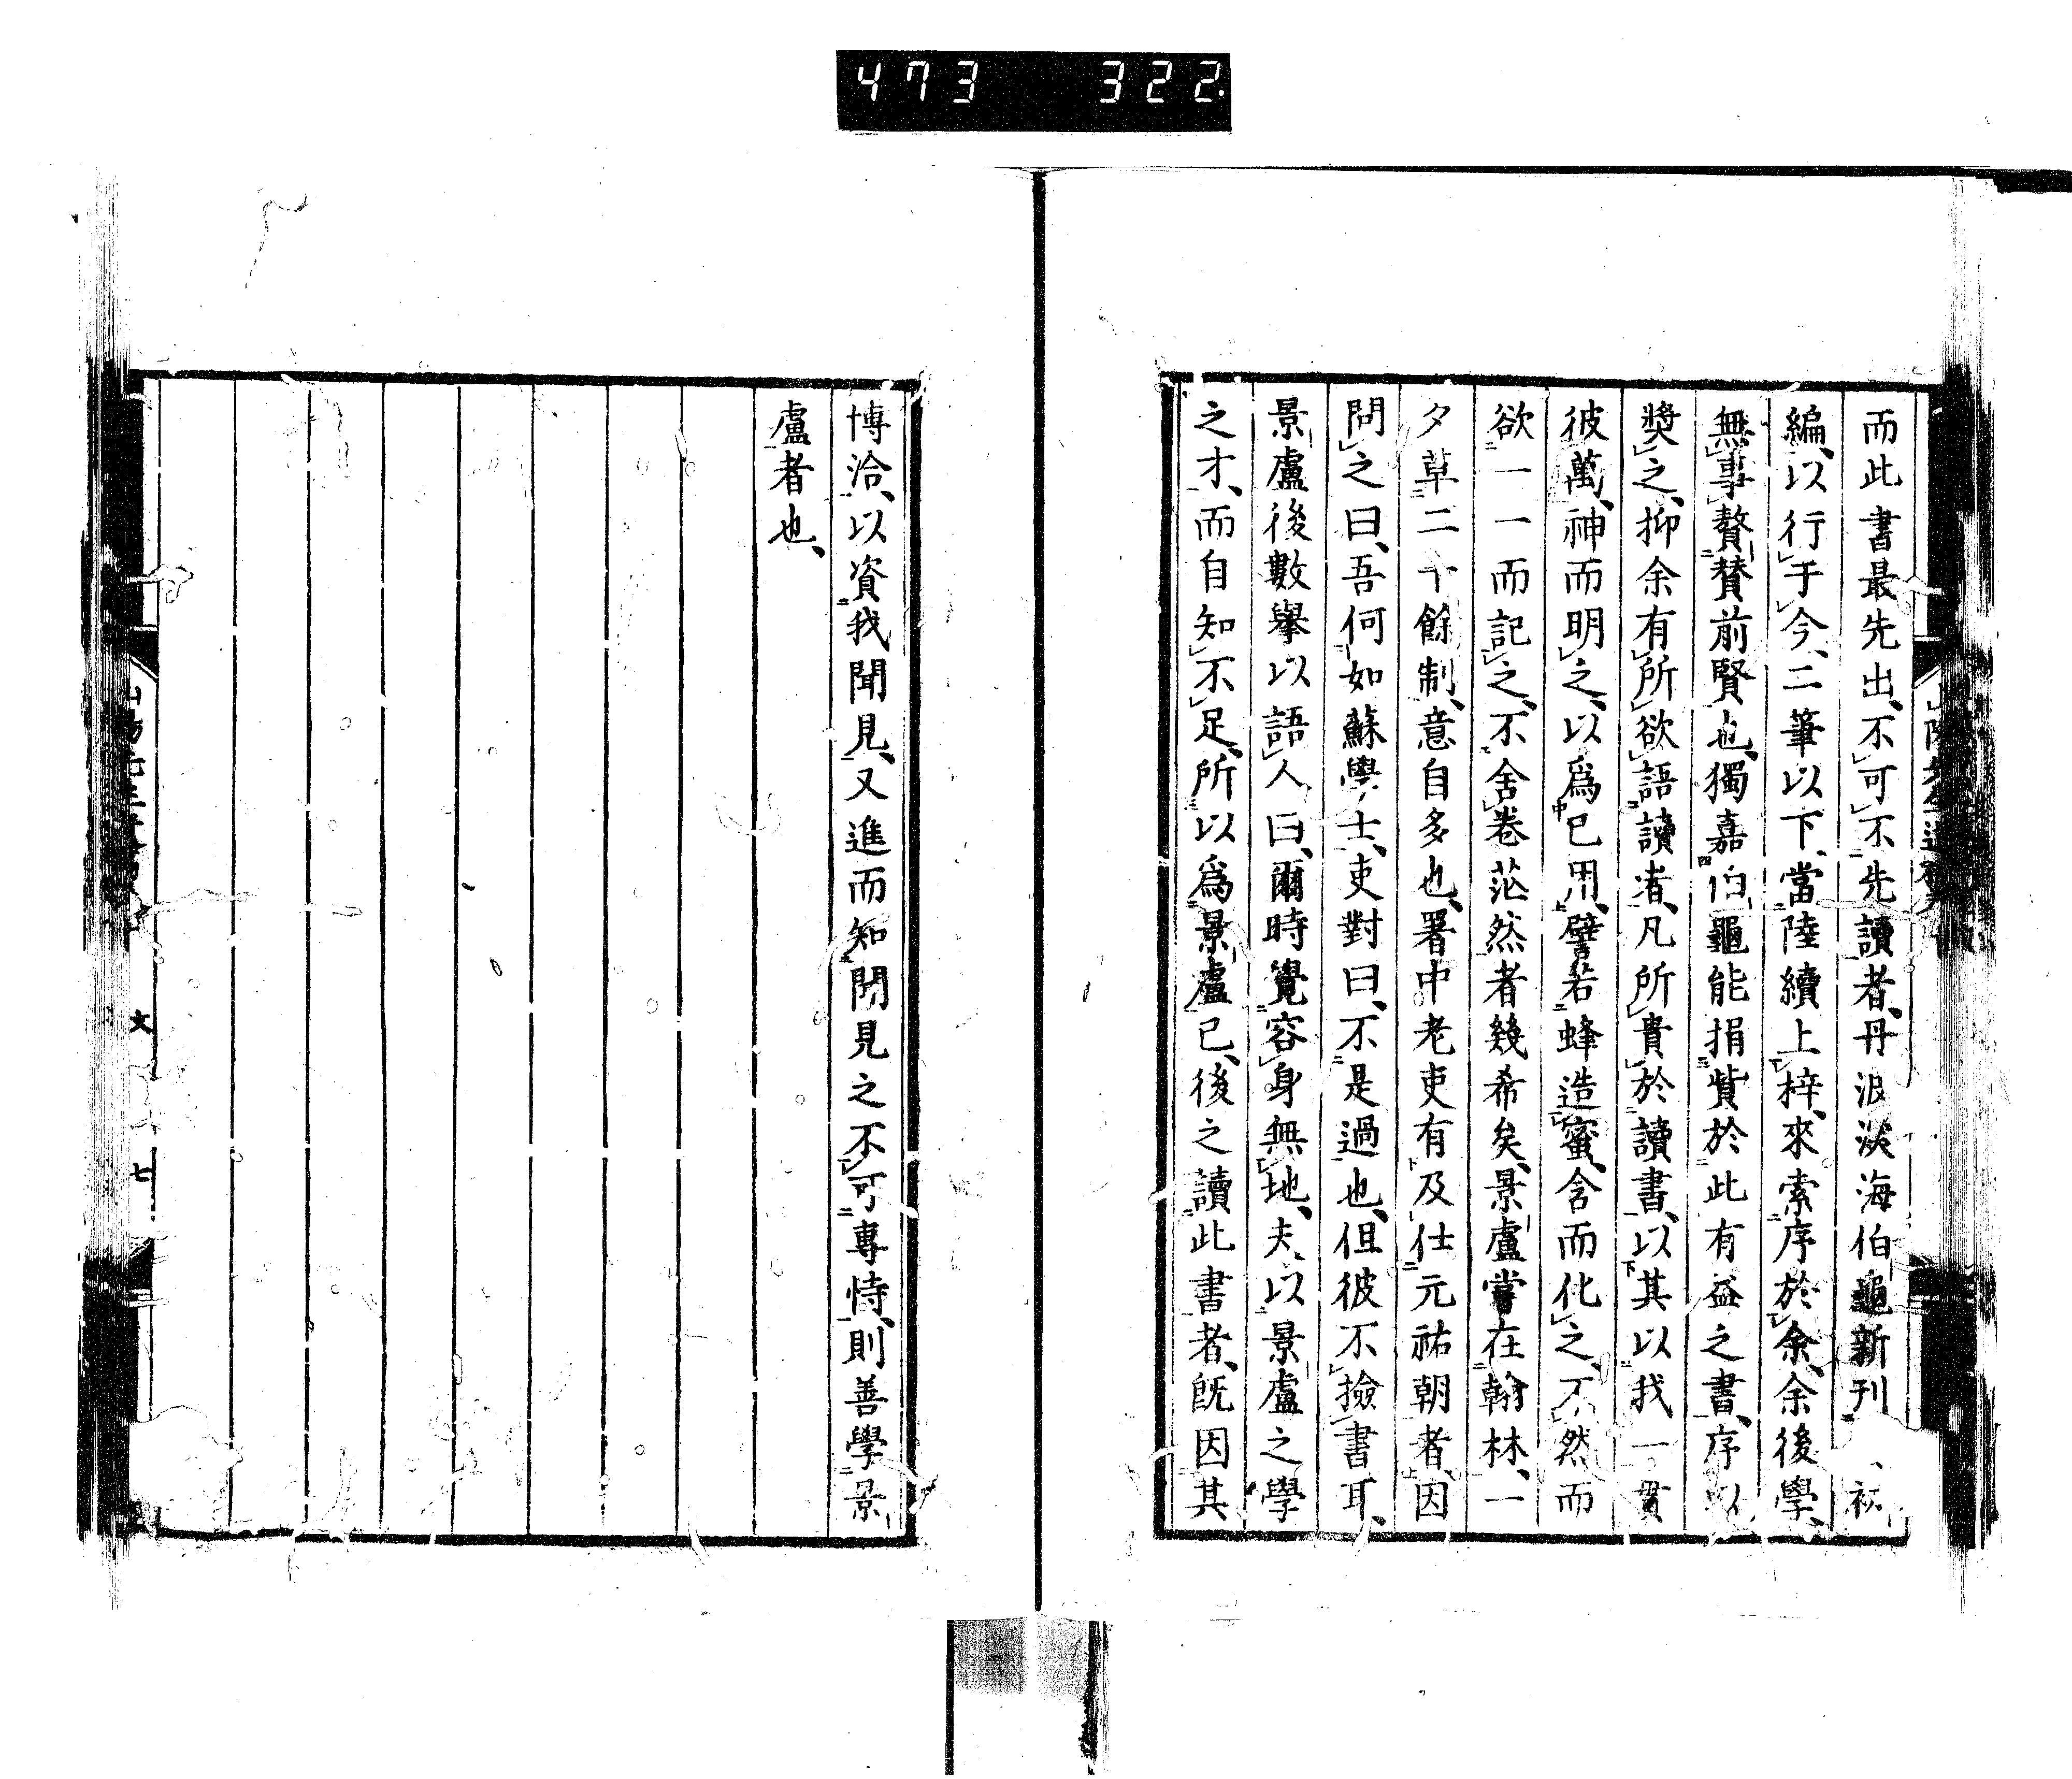 473 322.
而此書最先出、不可不先讀者、丹波淡海伯龜新刊
編、以行于今、二筆以下、當陸續上梓、來索序於余、余後學、
無事贅賛前賢也、獨嘉伯龜能捐貲於此有益之書、序以
奬之、抑余有所欲語讀者、凡所貴於讀書、以其以我一貫
彼萬、神而明之、以爲已用、譬若蜂造蜜、含而化之、不然而
欲一一而記之、不舍卷茫然者幾希矣、景盧嘗在翰林、一
夕草二十餘制、意自多也、署中老吏有及仕元祐朝者、因
問之曰、吾何如蘇學士、吏對曰、不是過也、但彼不撿書耳、
景盧後數擧以語人曰、爾時覺容身無地、夫以景盧之學
之才、而自知不足、所以爲景盧已、後之讀此書者、既因其
博洽、以資我聞見、又進而知聞見之不可專恃、則善學景
盧者也、
文
七